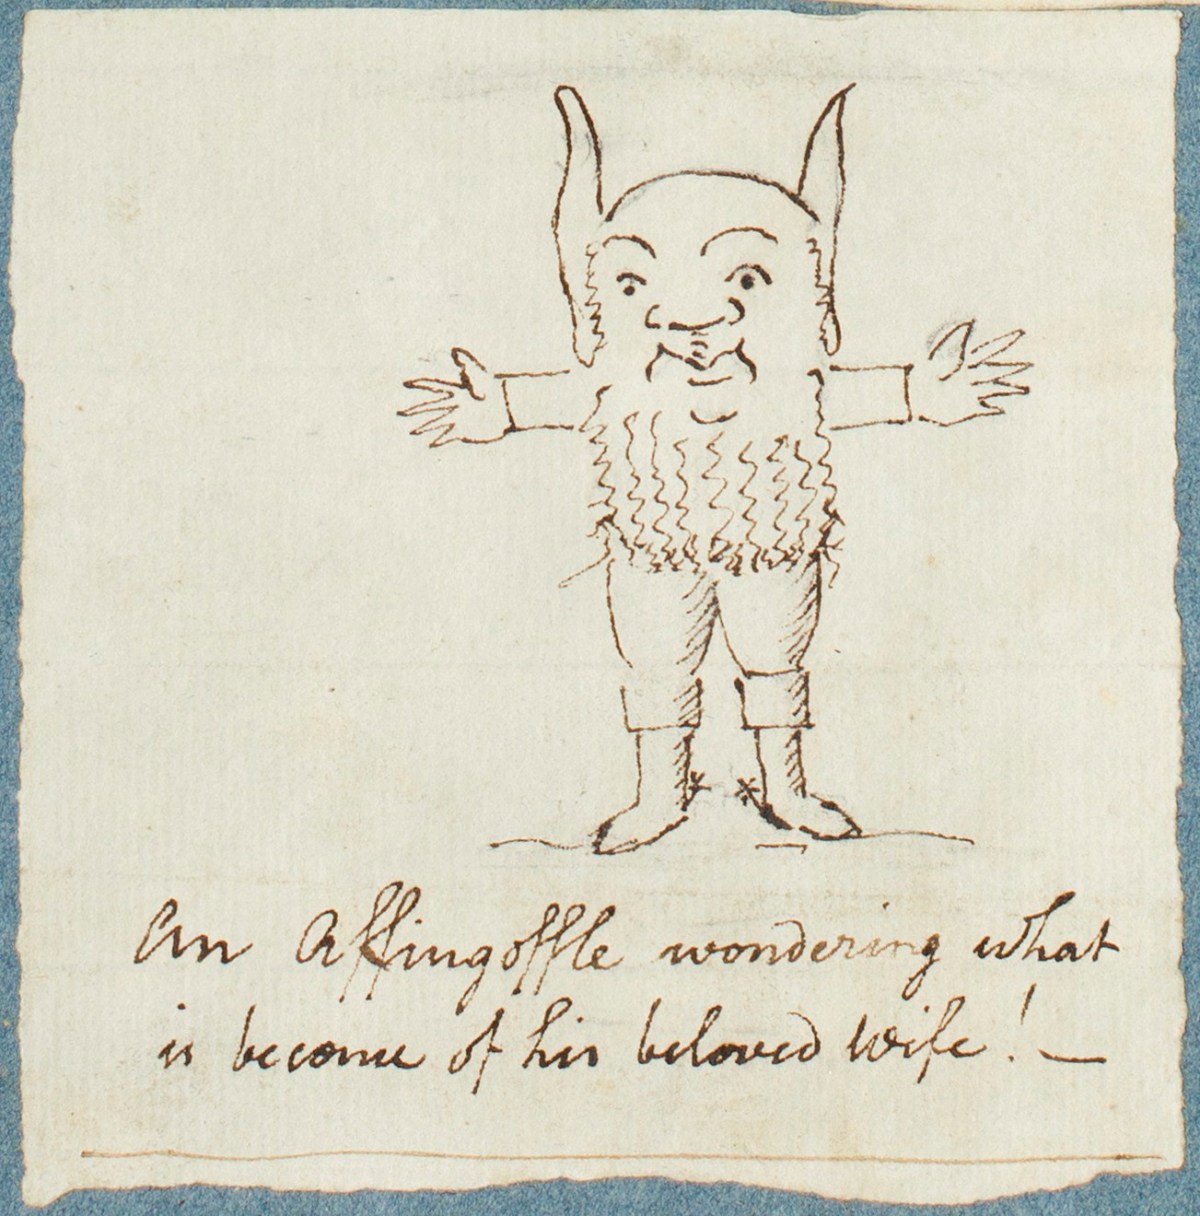 An Affingoffle wondering what
is become of his beloved wife! —